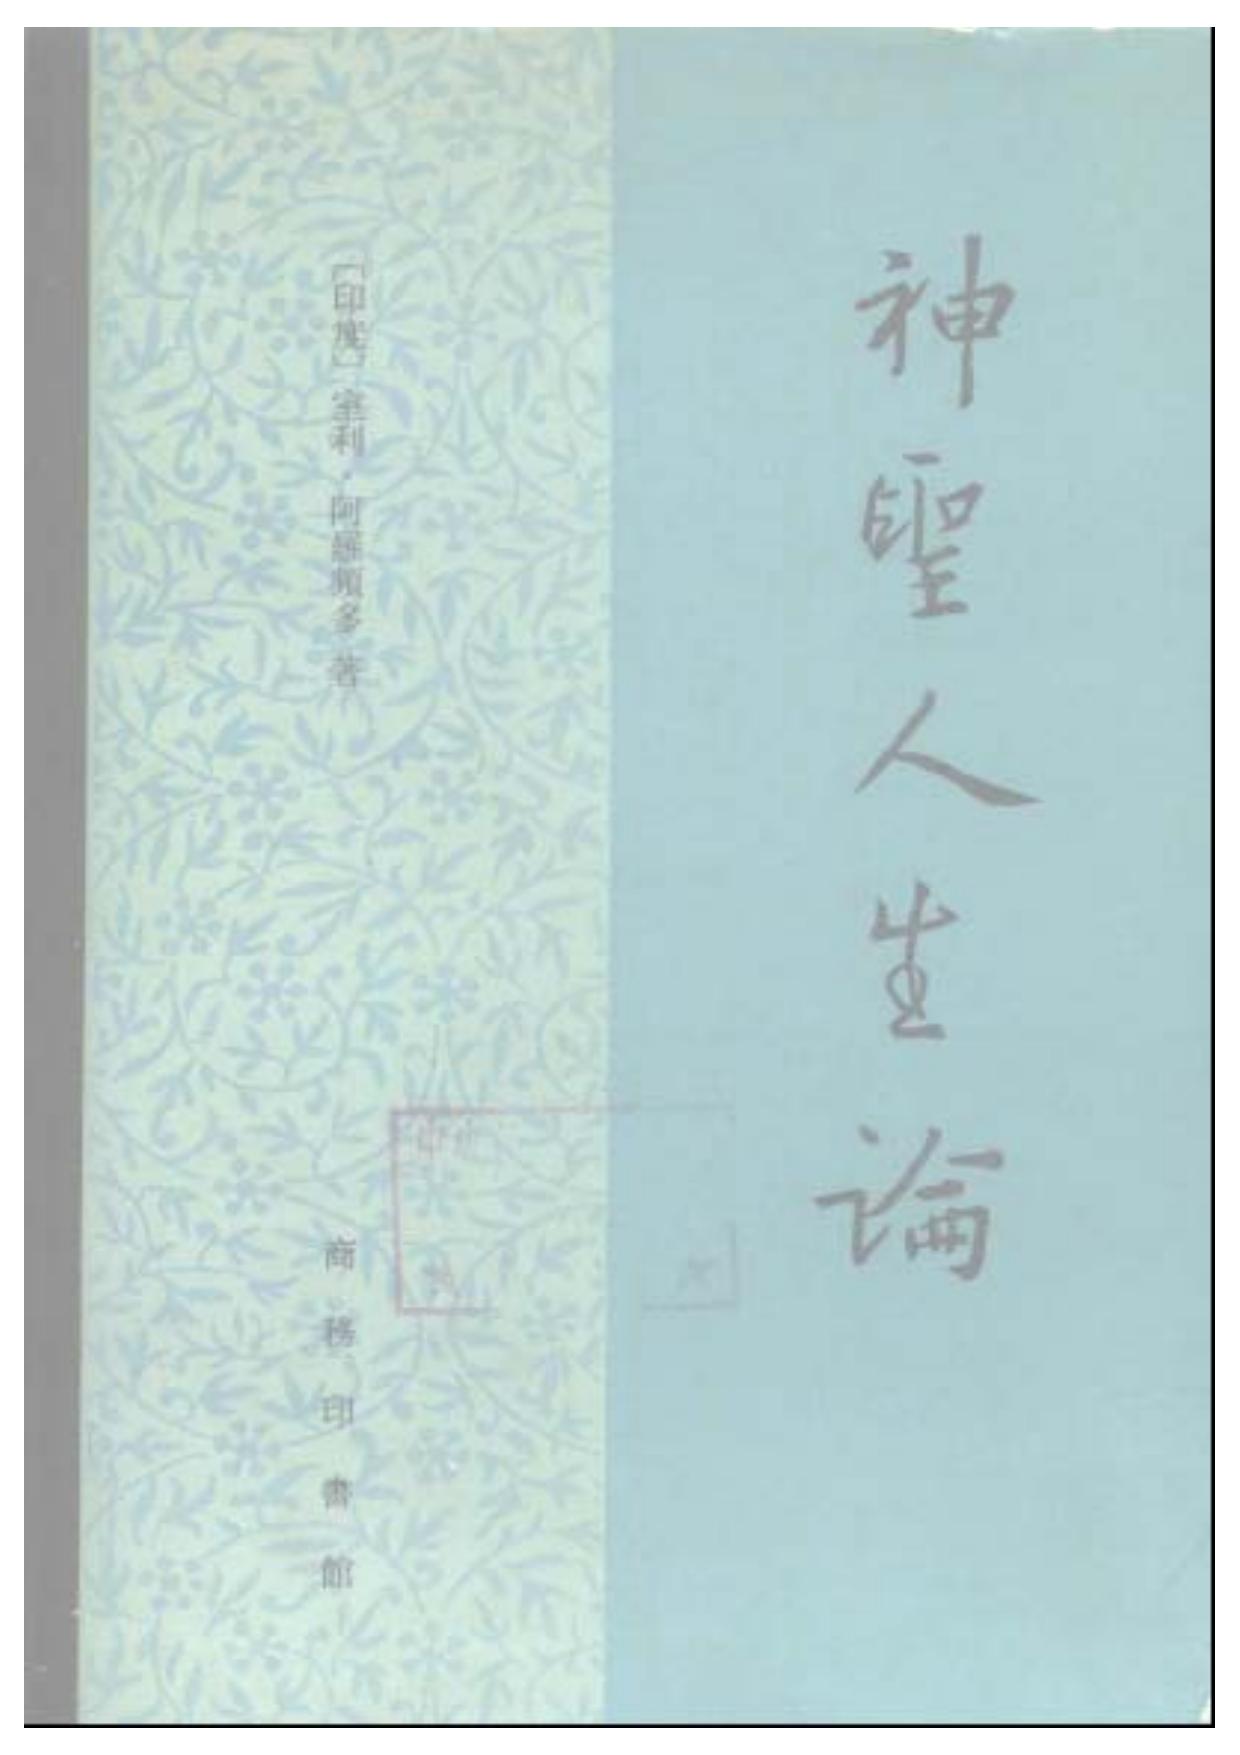 神聖人生論
[印度] 室利·阿羅頻多 著
商務印書館